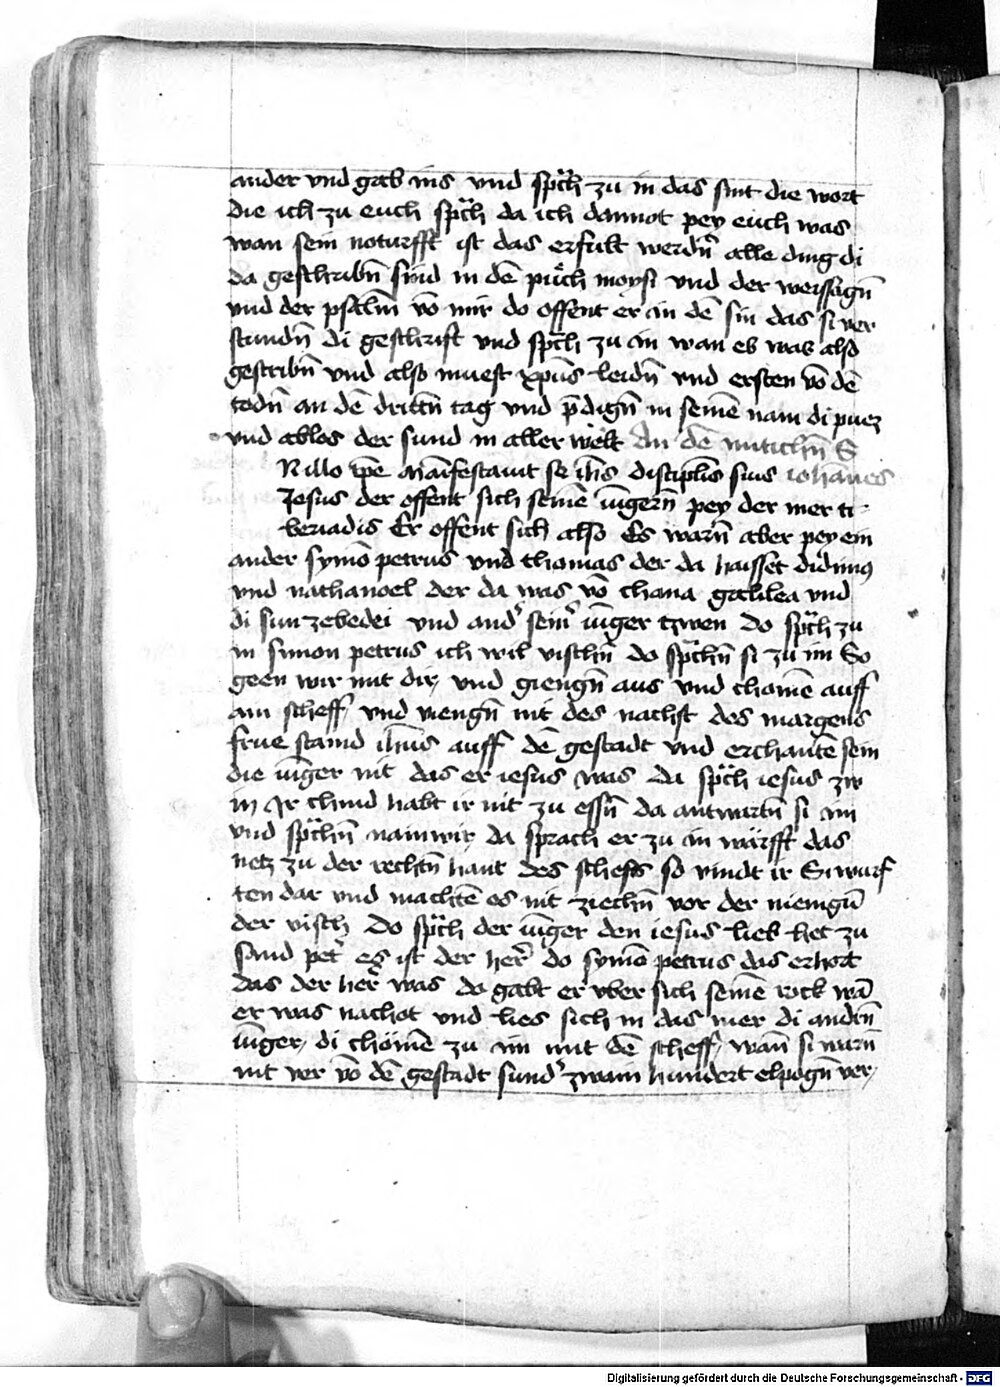 ander vnd gab ins vnd spͣch zu in das sint die wort
die ich zu euch spͣch da ich dannot pey euch was
wan sein noturfft ist das erfult werdn̄ alle ding di
da geschribn̄ sind in dē puͤch moysi vnd der weissagn̄
vnd der psalm̄ vō mir do offent er in dē sin das si ver
stundn̄ di geschrift vnd spͣch zu in wan es was also
gescribn̄ vnd also muest xp̄us leidn̄ vnd ersten vō dē
todn̄ an dē drittn̄ tag vnd p̄dign̄ in seinē nam di puez
vnd ablos der sund in aller welt An dē mitichn̄ S
N illo tp̄e Maīfestauit se ih̄s discipulis suis iohānes
Jesus der offent sich seinē iūgern̄ pey der mer ti
beriadis Er offent sich also Es warn̄ aber pey ein
ander symō petrus vnd thomas der da haisset didimꝰ
vnd nathanoel der da was vō chana galilea vnd
di sun zebedei vnd andˀ seinˀ iūger tzwen Do spͣch zu
in simon petrus ich wil vischn̄ do spͣchn̄ si zu im So
geen wir mit dir / vnd giengn̄ aus vnd chomē auff
ain scheff / vnd viengn̄ nit des nachst des margens
frue stand ih̄us auff dē gestadt vnd erchantē sein
die iūger nit das er iesus was da spͣch iesus zw
in Jr chind habt ir nit zu essn̄ da antwurtn̄ si im
vnd spͣchn̄ nain wir / da sprach er zu in wärfft das
netz zu der rechtn̄ hant des scheffs so vindt ir Si wurf
ten dar vnd machtē es nit ziechn̄ vor der menigū
der visch Do spͣch der iūger den iesus lieb het zu
sand petˀ es ist der herˀ do symō petrus das erhort
das der herˀ was do gabt er vber sich seinē rock wā
er was nachot vnd lies sich in das mer di andrn̄
iūger / di chömē zu im mit dē scheff / wan̄ si warn̄
nit ver vō dē gestadt sundˀ zwain hundert elpogn̄ ver /
Digitalisierung gefördert durch die Deutsche Forschungsgemeinschaft - DFG